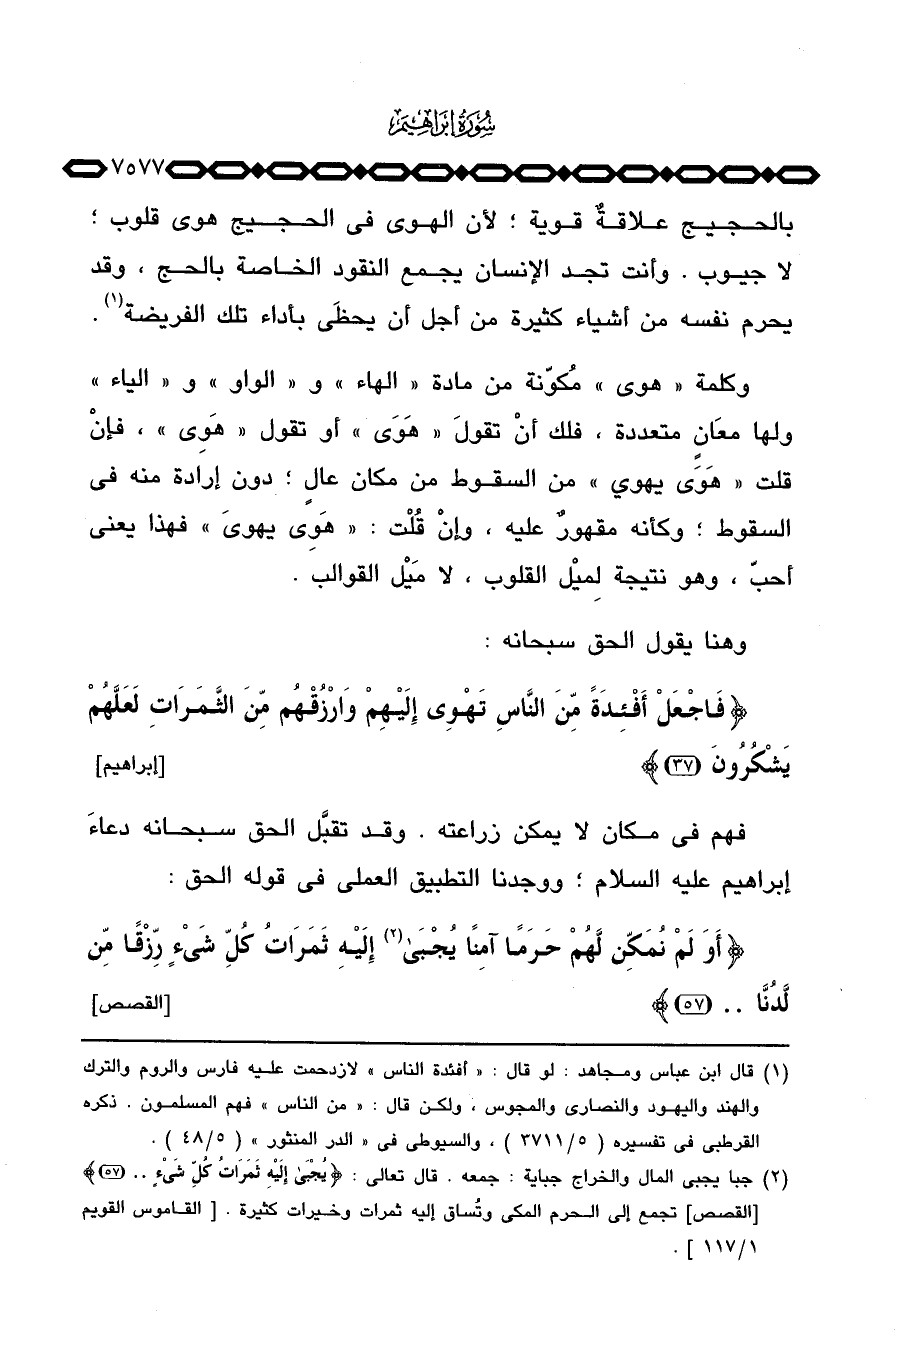 سُورَةُ إِبْرَاهِيمَ
٧٥٧٧
بالحـجـيـج عـلاقـةٌ قـوية ؛ لأن الهـوى فى الحـجـيج هوى قلوب ؛
لا جيـوب . وأنت تجـد الإنسان يجـمع النقود الخـاصة بالحـج ، وقد
يحرم نفسه من أشياء كثيرة من أجل أن يحظَى بأداء تلك الفريضة(١) .
وكلمة « هوى » مُكوّنة من مادة « الهاء » و « الواو » و « الياء »
ولها معَانٍ متعددة ، فلك أنْ تقولَ « هَوَى » أو تقول « هَوِى » ، فإنْ
قلت « هَوَى يهوِي » من السقـوط من مكان عالٍ ؛ دون إرادة منه فى
السقوط ؛ وكأنه مقهورٌ عليه ، وإنْ قُلْت : « هَوِى يهوىَ » فهذا يعنى
أحبّ ، وهو نتيجة لميْل القلوب ، لا مَيْل القوالب .
وهنا يقول الحق سبحانه :
﴿ فَاجْعَلْ أَفْئِدَةً مِّنَ النَّاسِ تَهْوِى إِلَيْهِمْ وَارْزُقْهُم مِّنَ الثَّمَرَاتِ لَعَلَّهُمْ
يَشْكُرُونَ (٣٧) ﴾ [إبراهيم]
فهم فى مـكان لا يمكن زراعته . وقـد تقبَّل الحق سـبحـانه دعاءَ
إبراهيم عليه السلام ؛ ووجدنا التطبيق العملى فى قوله الحق :
﴿ أَوَ لَمْ نُمَكِّن لَّهُمْ حَرَمًا آمِنًا يُجْبَىٰ(٢) إِلَيْهِ ثَمَرَاتُ كُلِّ شَىْءٍ رِّزْقًا مِّن
لَّدُنَّا .. (٥٧) ﴾ [القصص]
(١) قال ابن عباس ومـجاهد : لو قال : « أفئدة الناس » لازدحمت علـيه فارس والروم والترك
والهند واليهـود والنصارى والمجوس ، ولكـن قال : « من الناس » فهم المسلمـون . ذكره
القرطبى فى تفسيره ( ٣٧١١/٥ ) ، والسيوطى فى « الدر المنثور » ( ٤٨/٥ ) .
(٢) جبا يجبى المال والخراج جباية : جمعه . قال تعالى : ﴿ يُجْبَىٰ إِلَيْهِ ثَمَرَاتُ كُلِّ شَىْءٍ .. (٥٧) ﴾
[القصص] تجمع إلى الـحرم المكى وتُساق إليه ثمرات وخـيرات كثيرة . [ القـاموس القويم
١١٧/١ ] .